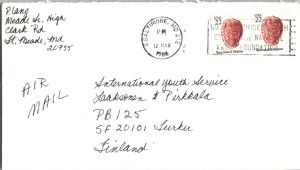 P. Lang
Meade Sr. High
Clark Rd
Ft. Meade, Md
20755
BALTIMORE, MD
PM
12 MAR
1986
22
22
AIR
MAIL
International Youth Service
Laaksonen & Pirkkala
PB 125
SF 20101 Turku
Finland